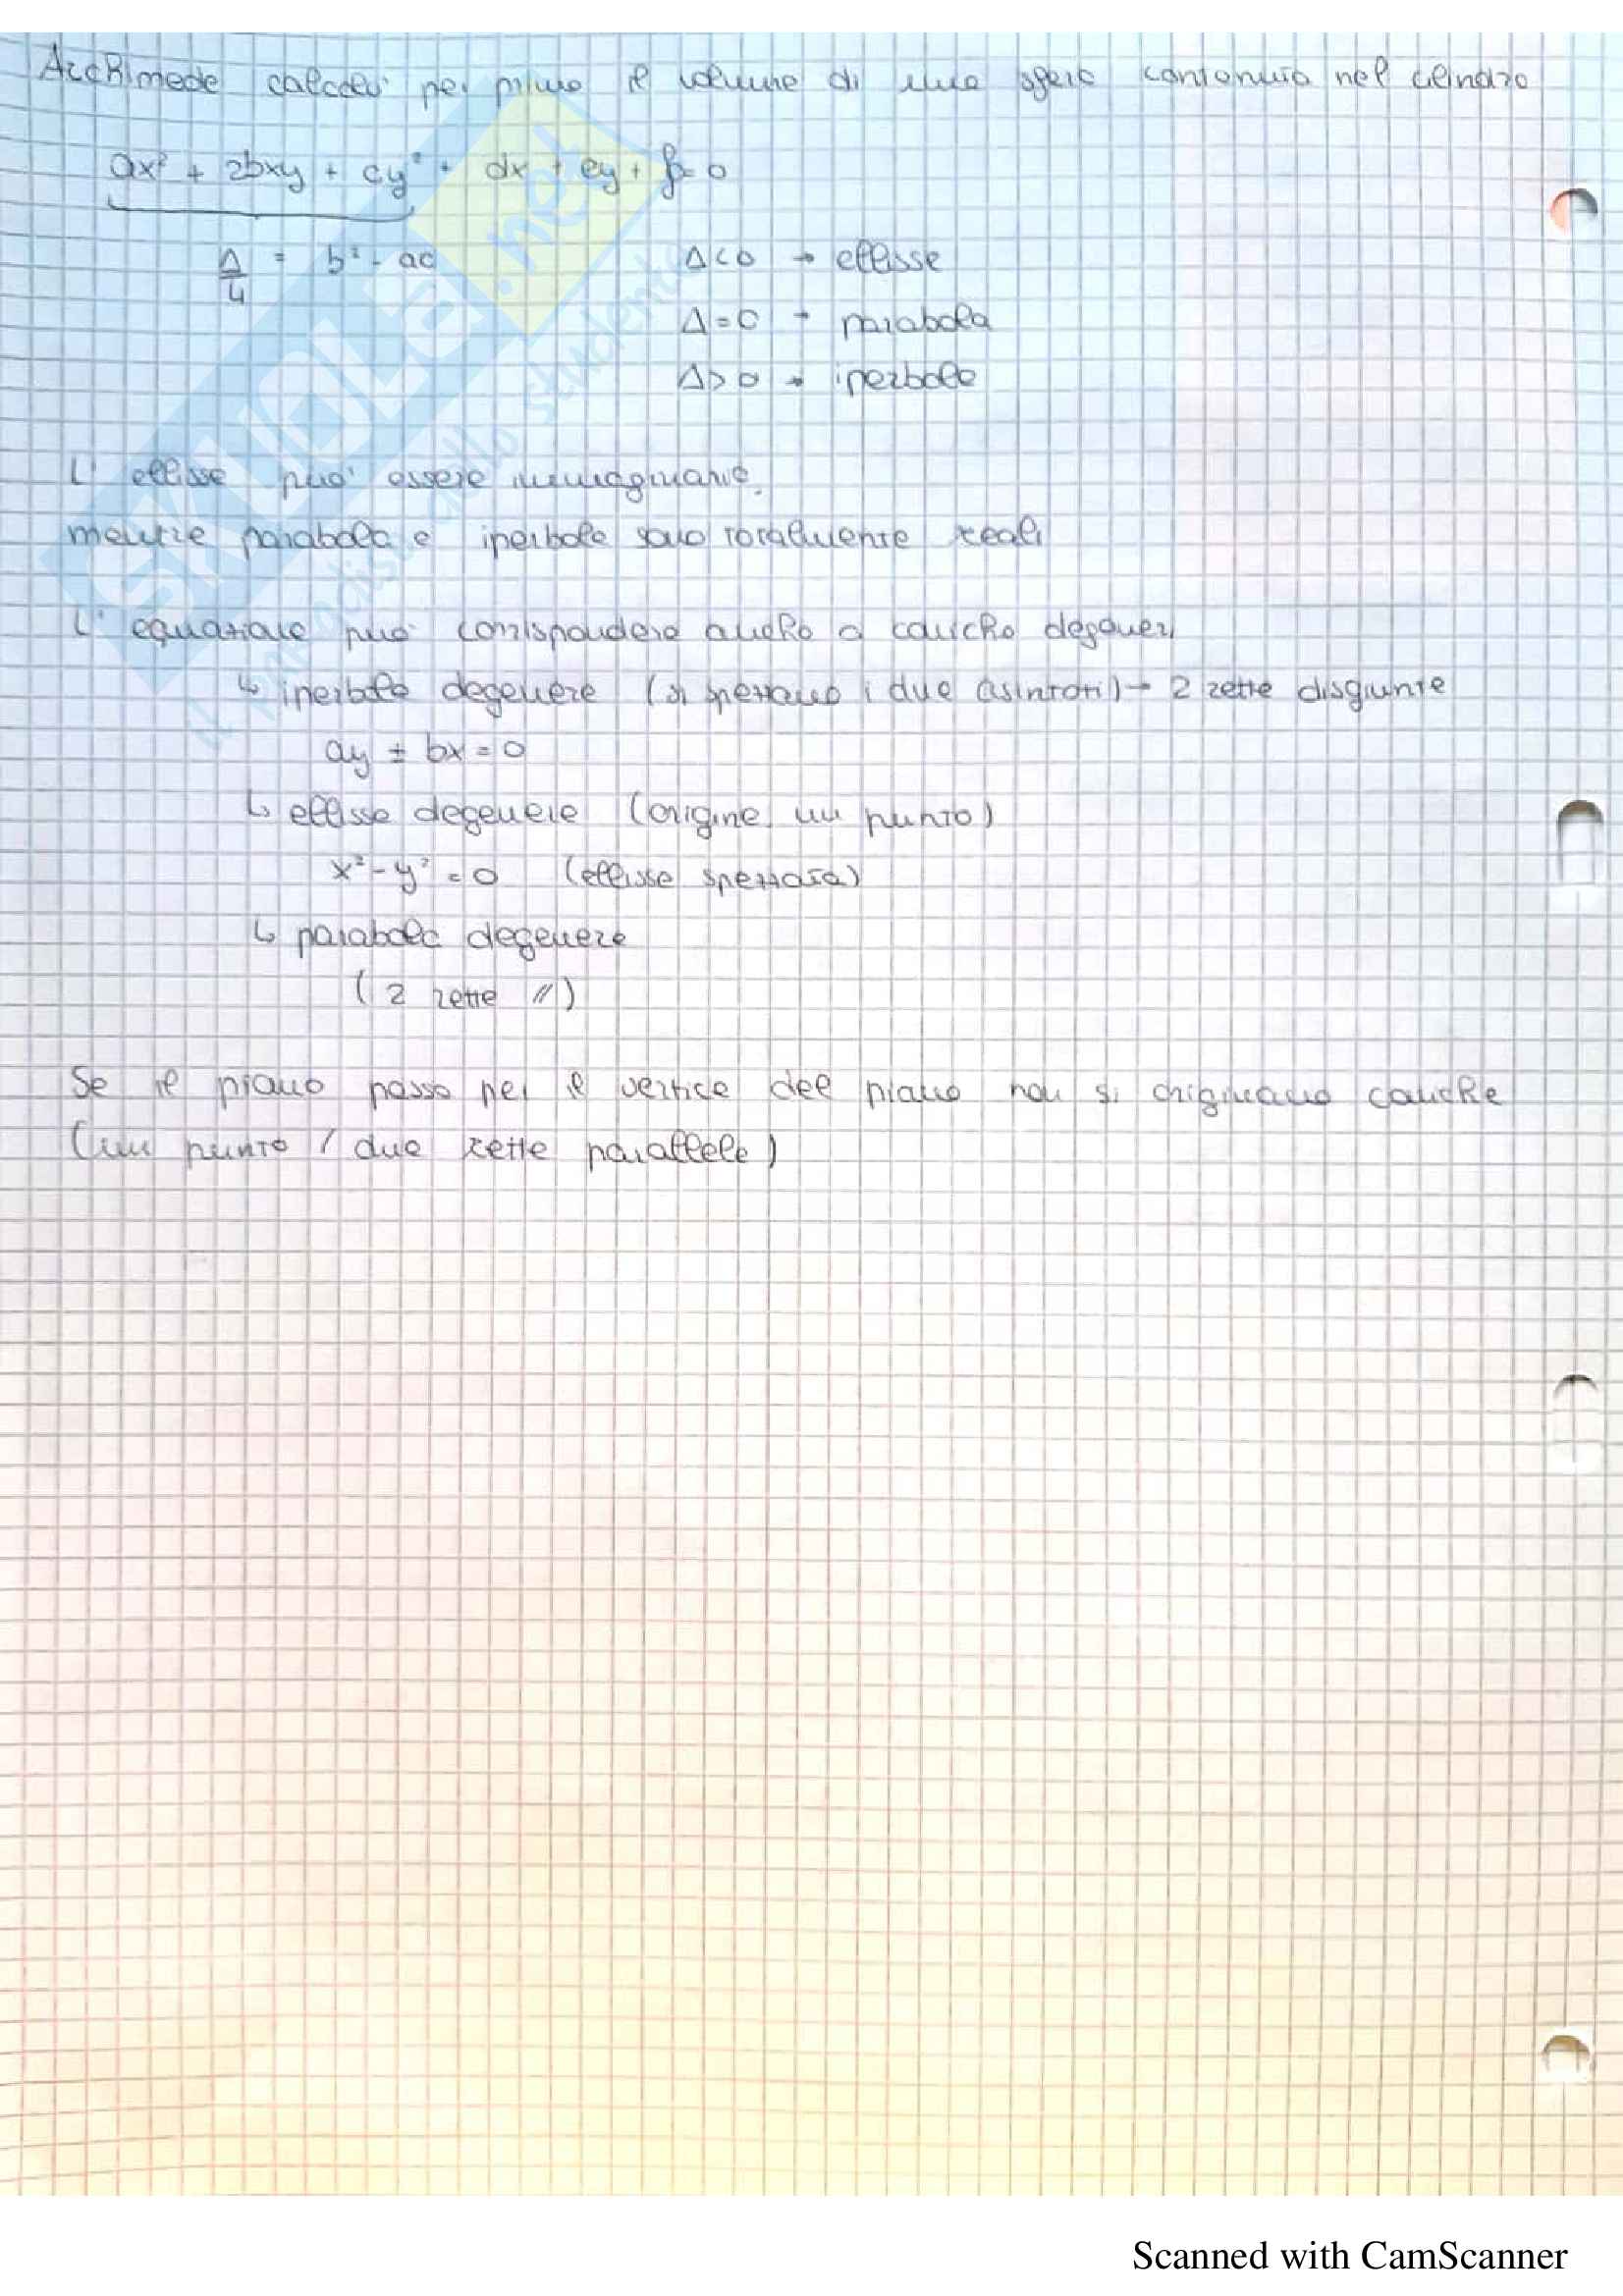 Archimede calcolò per primo il volume di una sfera contenuta nel cilindro
ax² + 2bxy + cy² + dx + ey + f = 0
Δ/4 = b² - ac Δ<0 → ellisse
Δ=0 → parabola
Δ>0 → iperbole
L'ellisse può essere immaginaria,
mentre parabola e iperbole sono totalmente reali
L'equazione può corrispondere anche a coniche degeneri
↳ iperbole degenere (si spezzano i due asintoti) → 2 rette disgiunte
ay ± bx = 0
↳ ellisse degenere (origine, un punto)
x² - y² = 0 (ellisse spezzata)
↳ parabola degenere
(2 rette //)
Se il piano passa per il vertice del piano non si originano coniche
(un punto / due rette parallele)
SKUOLA.net
il paradiso dello studente
Scanned with CamScanner